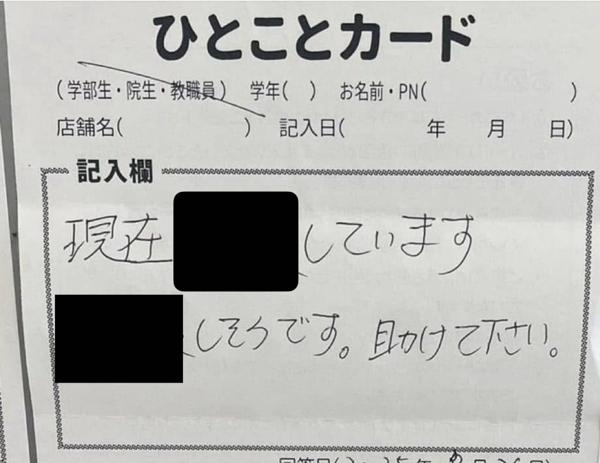 ひとことカード
(学部生・院生・教職員) 学年( ) お名前・PN( )
店舗名( ) 記入日( 年 月 日)
記入欄
現在 しています
しそうです。助けて下さい。